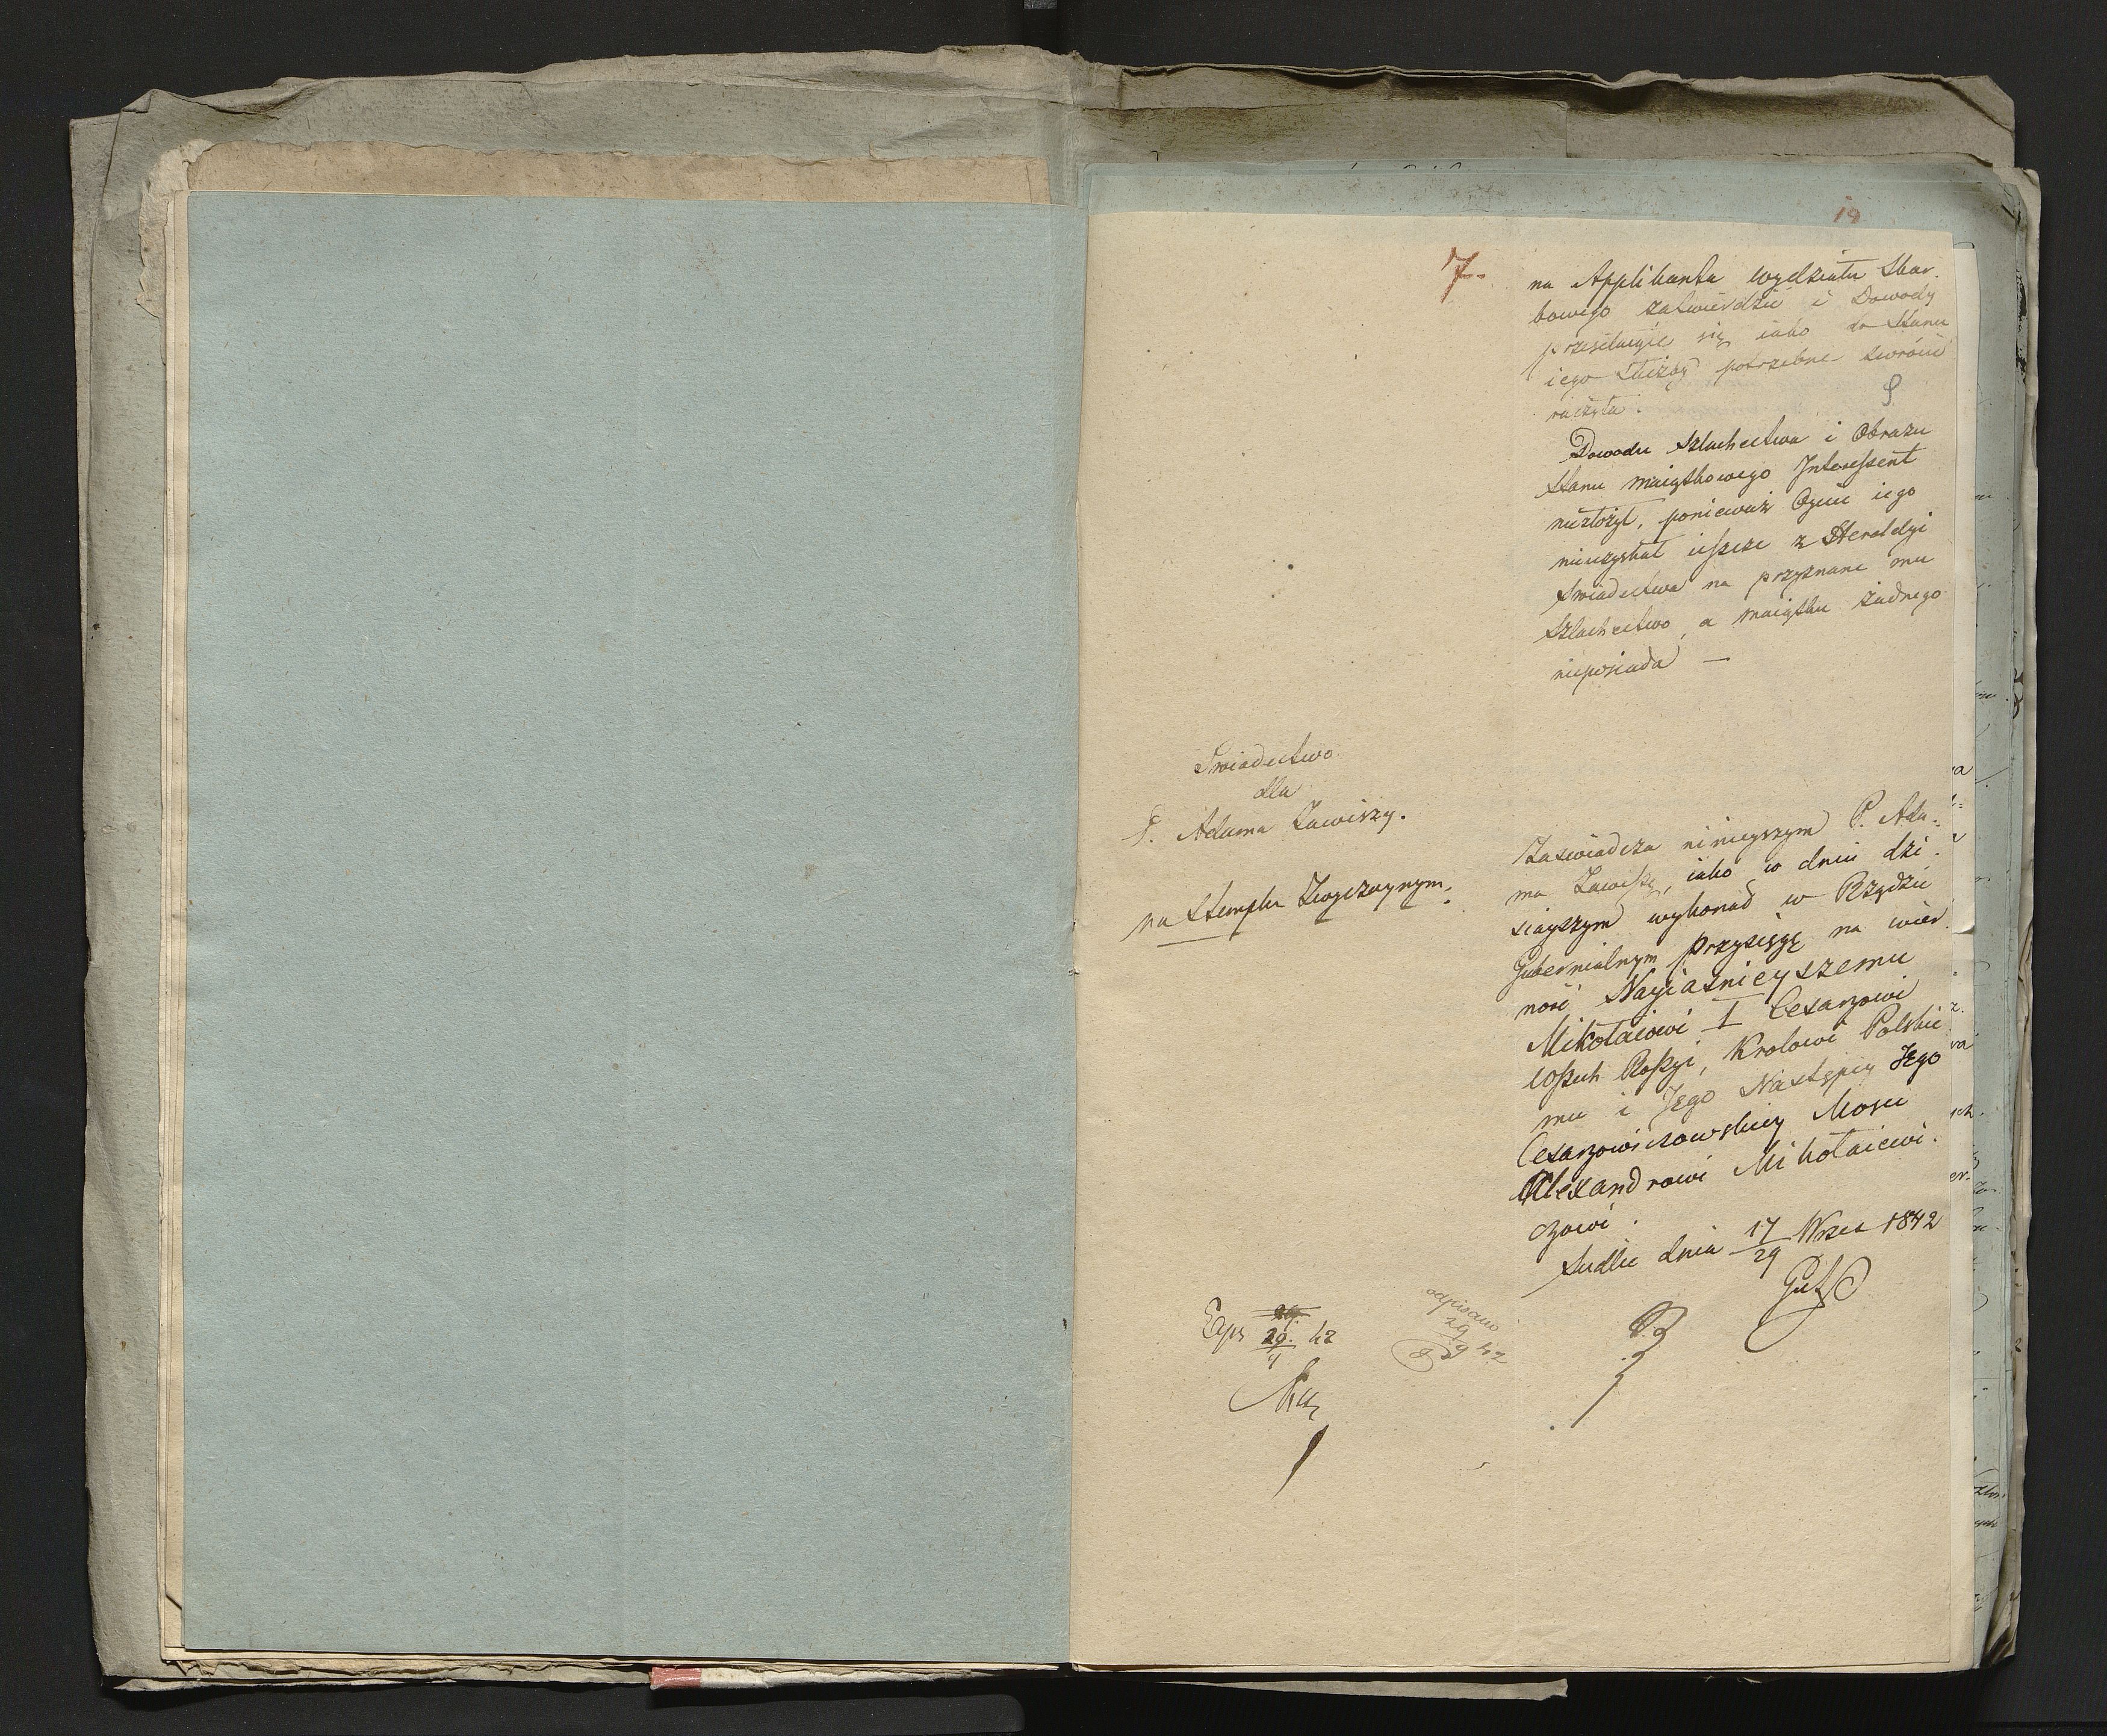 19
7.
na Applikanta wydziału Skar-
bowego zatwierdzić i Dowody
przesełaiące się iako do Stanu
iego służby potrzebne zwrócić
raczyła.
Dowodu Szlachectwa i Obrazu
Stanu maiątkowego Interessent
niezłożył, ponieważ Oyciec iego
nieuzyskał ieszcze z Heroldyi
Swiadectwa na przyznane mu
Szlachectwo, a maiątku żadnego
nieposiada —
Swiadectwo
dla
P. Adama Zawiszy.
na Stemplu Zwyczaynym.
Zaświadcza ninieyszym P. Ada-
ma Zawiszę, iako w dniu dzi-
sieyszym wykonał w Rządzie
Gubernialnym przysięgę na wier-
ność Nayiaśnieyszemu
Mikołaiowi I Cesarzowi
Wszech Rossyi, Krolowi Polskie-
mu i Jego Następcy Jego
Cesarzowiczowskiey Mości
Alexandrowi Mikołaiewi-
czowi.
Siedlce dnia 17/29 Wrześ 1842
Exps 29/9 42
odpisano
29
9 42